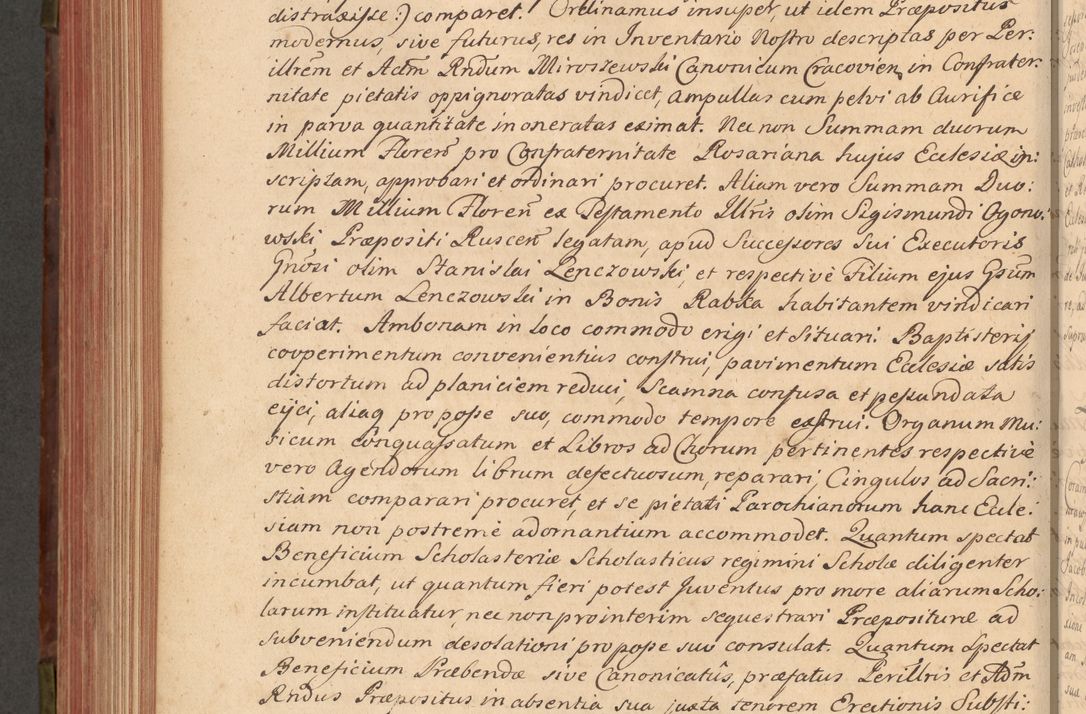 distraxisse:) comparet. Ordinamus insuper, ut idem Præpositus
modernus, sive futurus, res in Inventario Nostro descriptas per Per:
illrem et Adm Rndum Miroszewski Canonicum Cracovien, in Confrater:
nitate pietatis oppignoratas vindicet, ampullas cum pelvi ab Aurifice
in parva quantitate inoneratas eximat. Nec non Summam duorum
Millium Floren pro Confraternitate Rosariana hujus Ecclesiæ in:
scriptam, approbari et ordinari procuret. Aliam vero Summam Duo:
rum Millium Floren ex Testamento Illris olim Sigismundi Ogono:
wski Præpositi Ruscen legatam, apud Successores sui Executoris
Gnosi olim Stanislai Lenczowski, et respectivè Filium ejus Gsum
Albertum Lenczowski in Bonis Rabka habitantem vindicari
faciat. Ambonam in loco commodo erigi et situari. Baptisterij
cooperimentum convenientius construi, pavimentum Ecclesiæ satis
distortum ad planiciem reduci, Scamna confusa et pessundata
eijci, aliaq pro posse suo, commodo tempore exstrui. Organum Mu:
sicum conquassatum et Libros ad Chorum pertinentes respectivè
vero Agendorum librum defectuosum, reparari, Cingulos ad Sacri:
stiam comparari procuret, et se pietati Parochianorum hanc Eccle:
siam non postremè adornantium accommodet. Quantum spectat
Beneficium Scholasteriæ Scholasticus regimini Scholæ diligenter
incumbat, ut quantum fieri potest Juventus pro more aliarum Scho:
larum instituatur, nec non prointerim sequestrari Præposituræ ad
subveniendum desolationi pro posse suo consulat. Quantum spectat
Beneficium Præbendæ sive Canonicatûs, præfatus Perillris et Adm
Rndus Præpositus in absentia sua juxta tenorem Erectionis Substi: